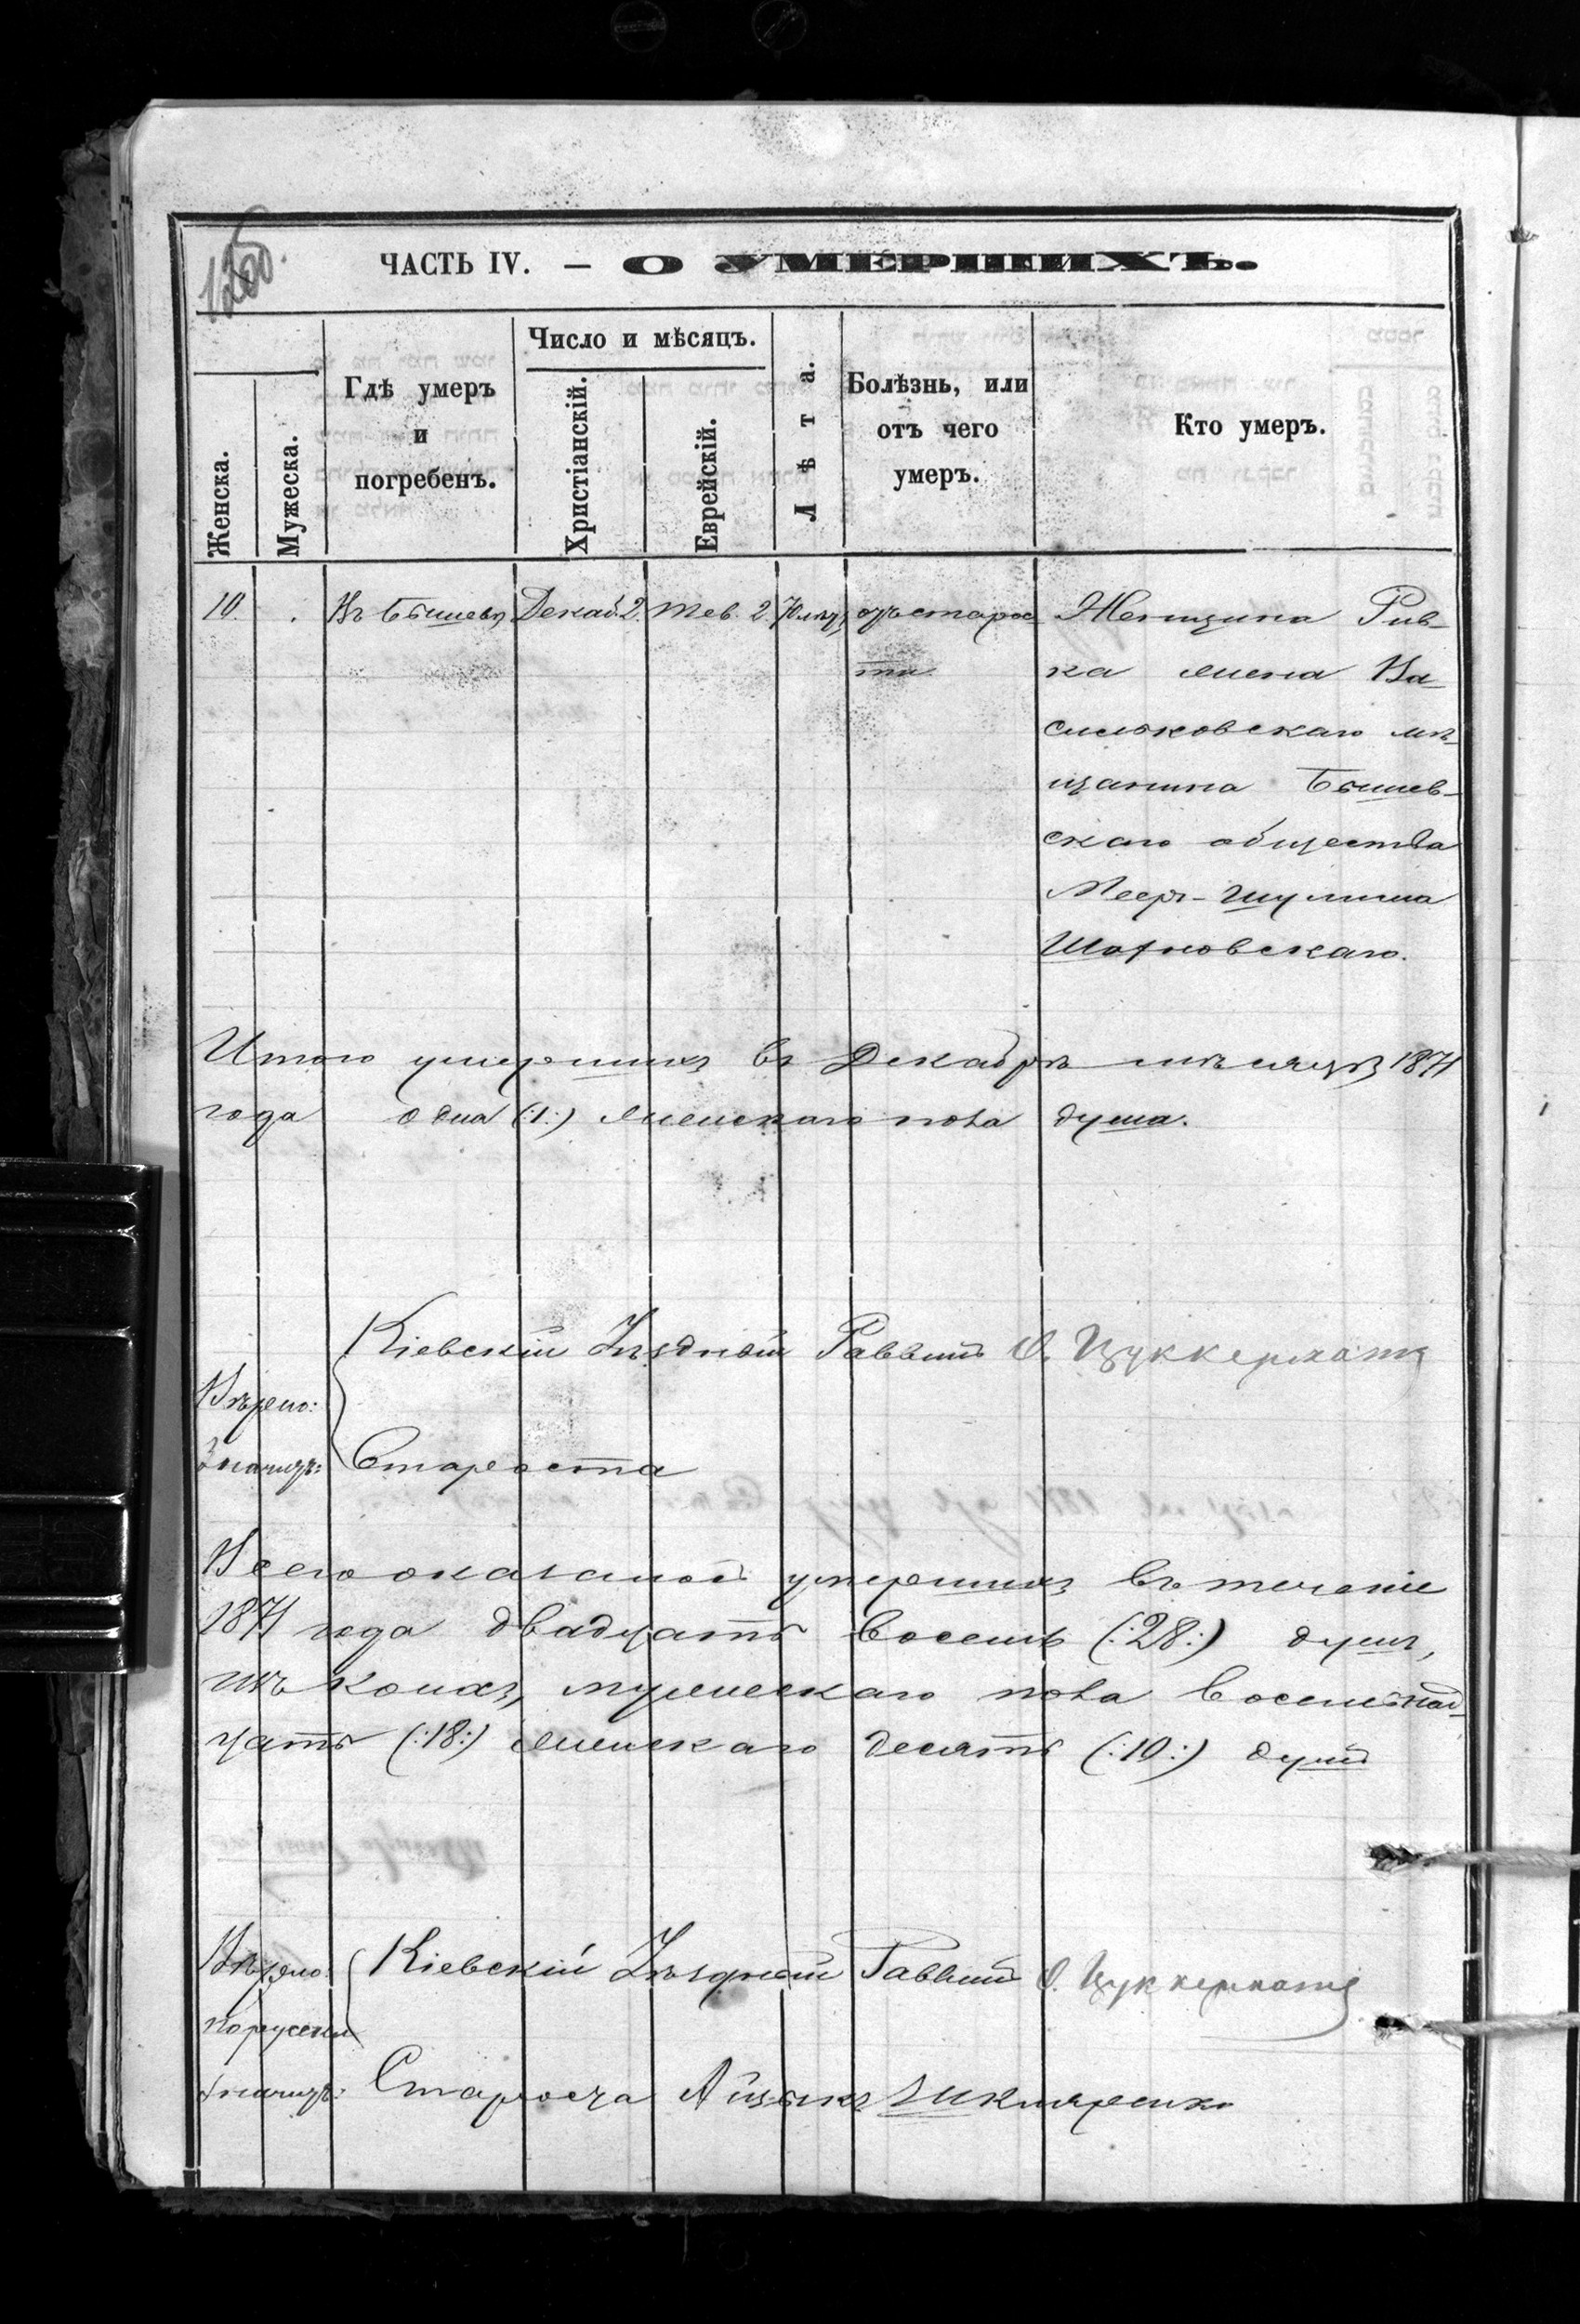 ЧАСТЬ IV. — О УМЕРШИХЪ.
Женска.
Мужеска.
Гдѣ умеръ
и
погребенъ.
Число и мѣсяцъ.
Христіанскій.
Еврейскій.
Лѣта.
Болѣзнь, или
отъ чего
умеръ.
Кто умеръ.
10. . Въ Бышевѣ Декаб. 2. Тев. 2. 70 лѣтъ отъ старос Женщина Рив-
ти ка жена Ва-
сильковскаго мѣ-
щанина Бышев-
скаго общества
Меер-Шулима
Итого умершихъ въ Декабрѣ мѣсяцѣ 1871
года одна (:1:) женскаго пола душа.
Кіевскій Уѣздный Раввинъ О. Цуккерманъ
Вѣрно:
Значитъ: Староста
Всего оказалось умершихъ въ теченіе
1871 года двадцать восемь (:28:) душъ,
изъ коихъ, мужескаго пола восемнад-
цать (:18:) женскаго десять (:10:) душъ
Вѣрно: Кіевскій Уѣздный Раввинъ О. Цуккерманъ
По русски
значитъ: Староста Айзыкъ